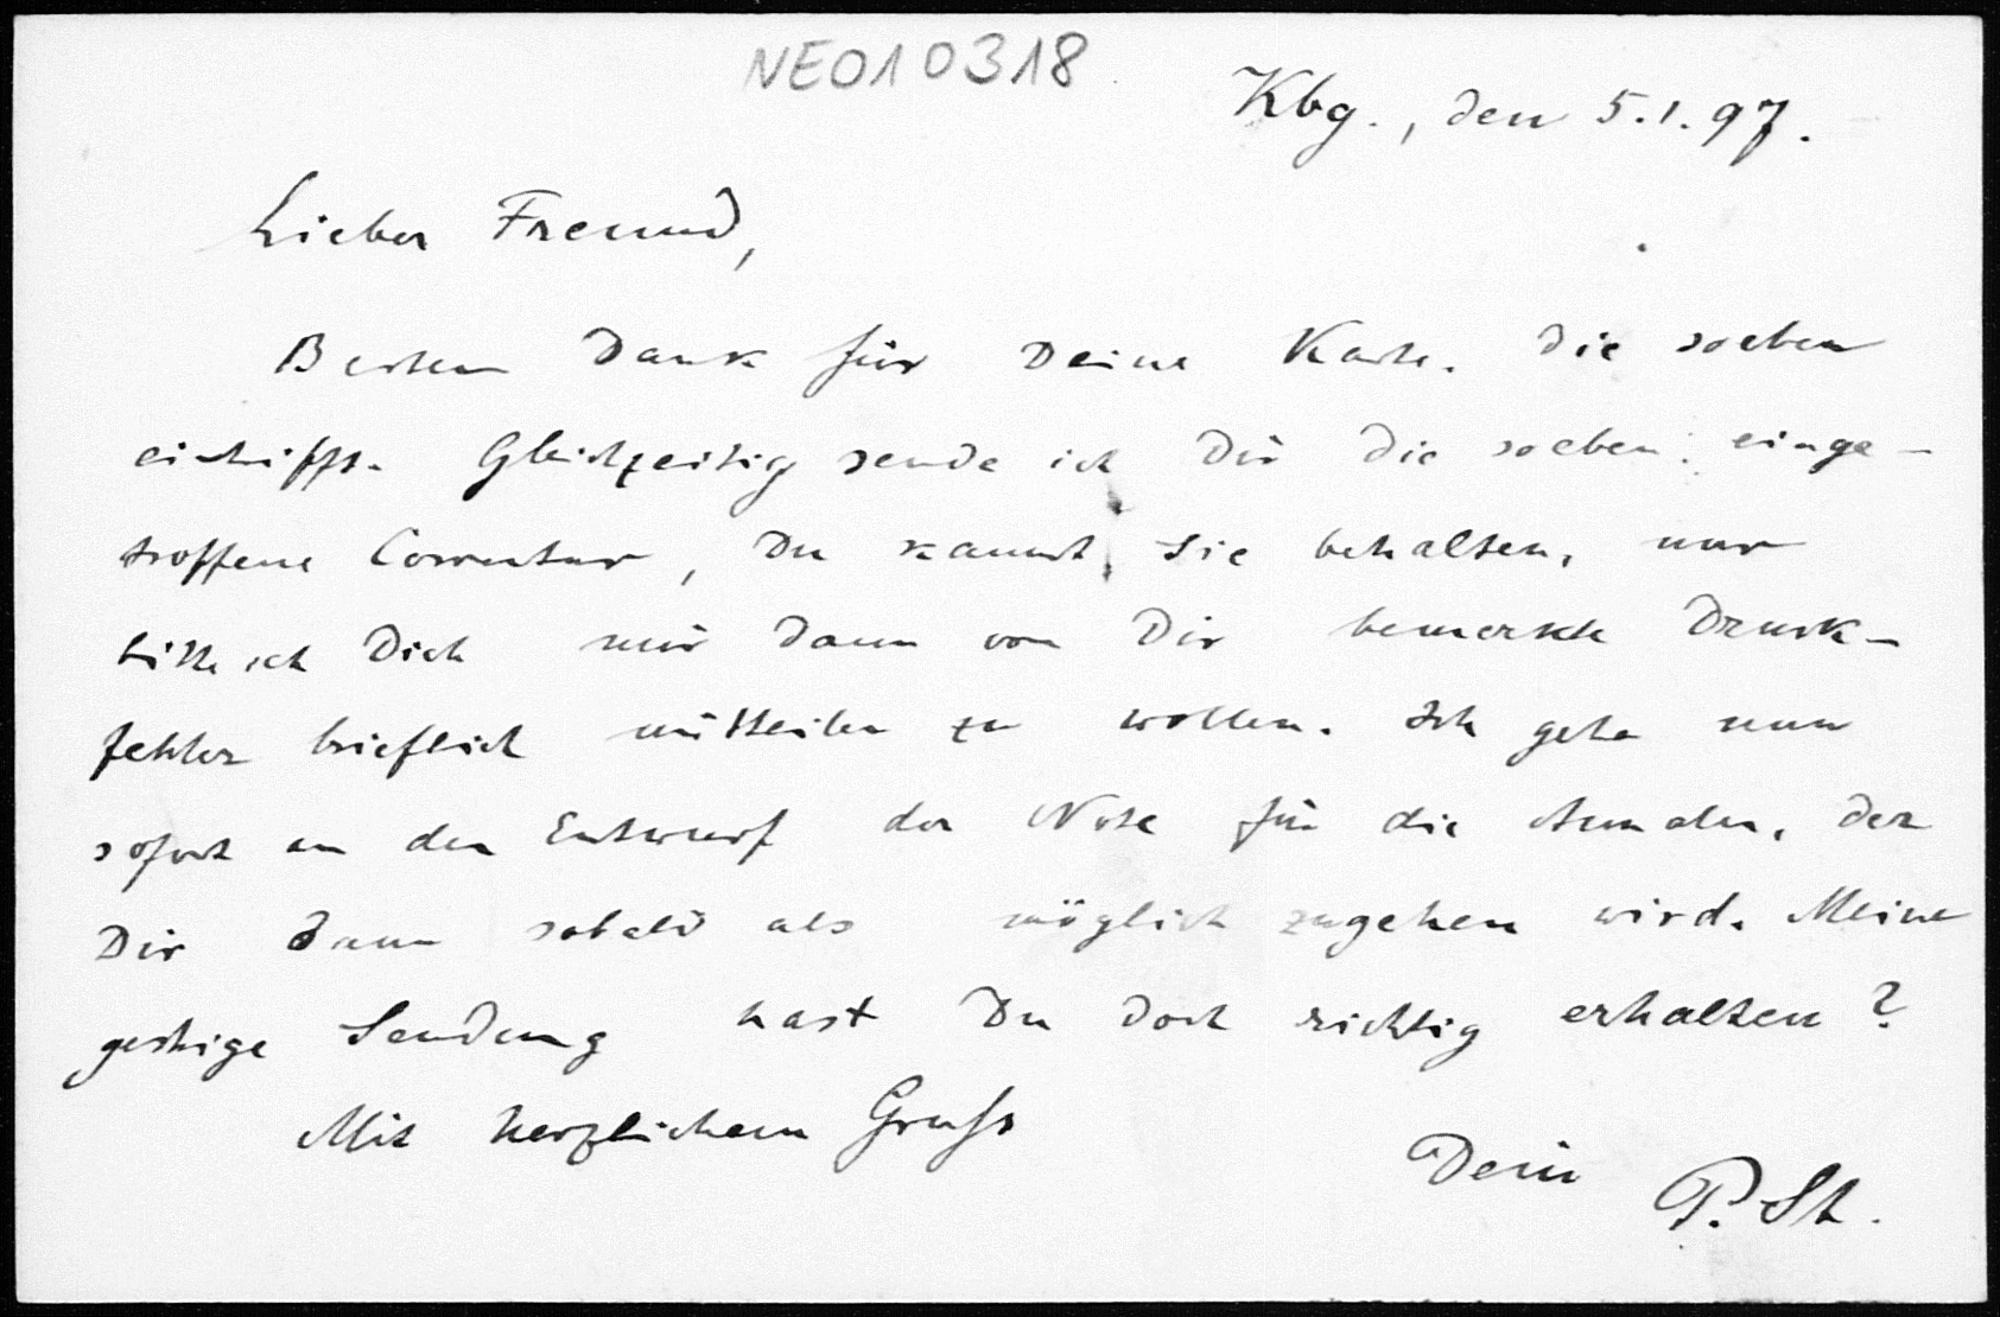 NE010318
Kbg., den 5.1.97.
Lieber Freund,
Besten Dank für Deine Karte. die soeben
eintrifft. Gleichzeitig sende ich Dir die soeben einge-
troffene Correctur, Du kannst sie behalten, nur
bitte ich Dich mir dann von Dir bemerkte Druck-
fehler brieflich mitteilen zu wollen. Ich gehe nun
sofort an den Entwurf der Note für die Annalen, der
Dir dann sobald als möglich zugehen wird. Meine
gestrige Sendung hast Du doch richtig erhalten?
Mit herzlichem Gruss
Dein P. St.